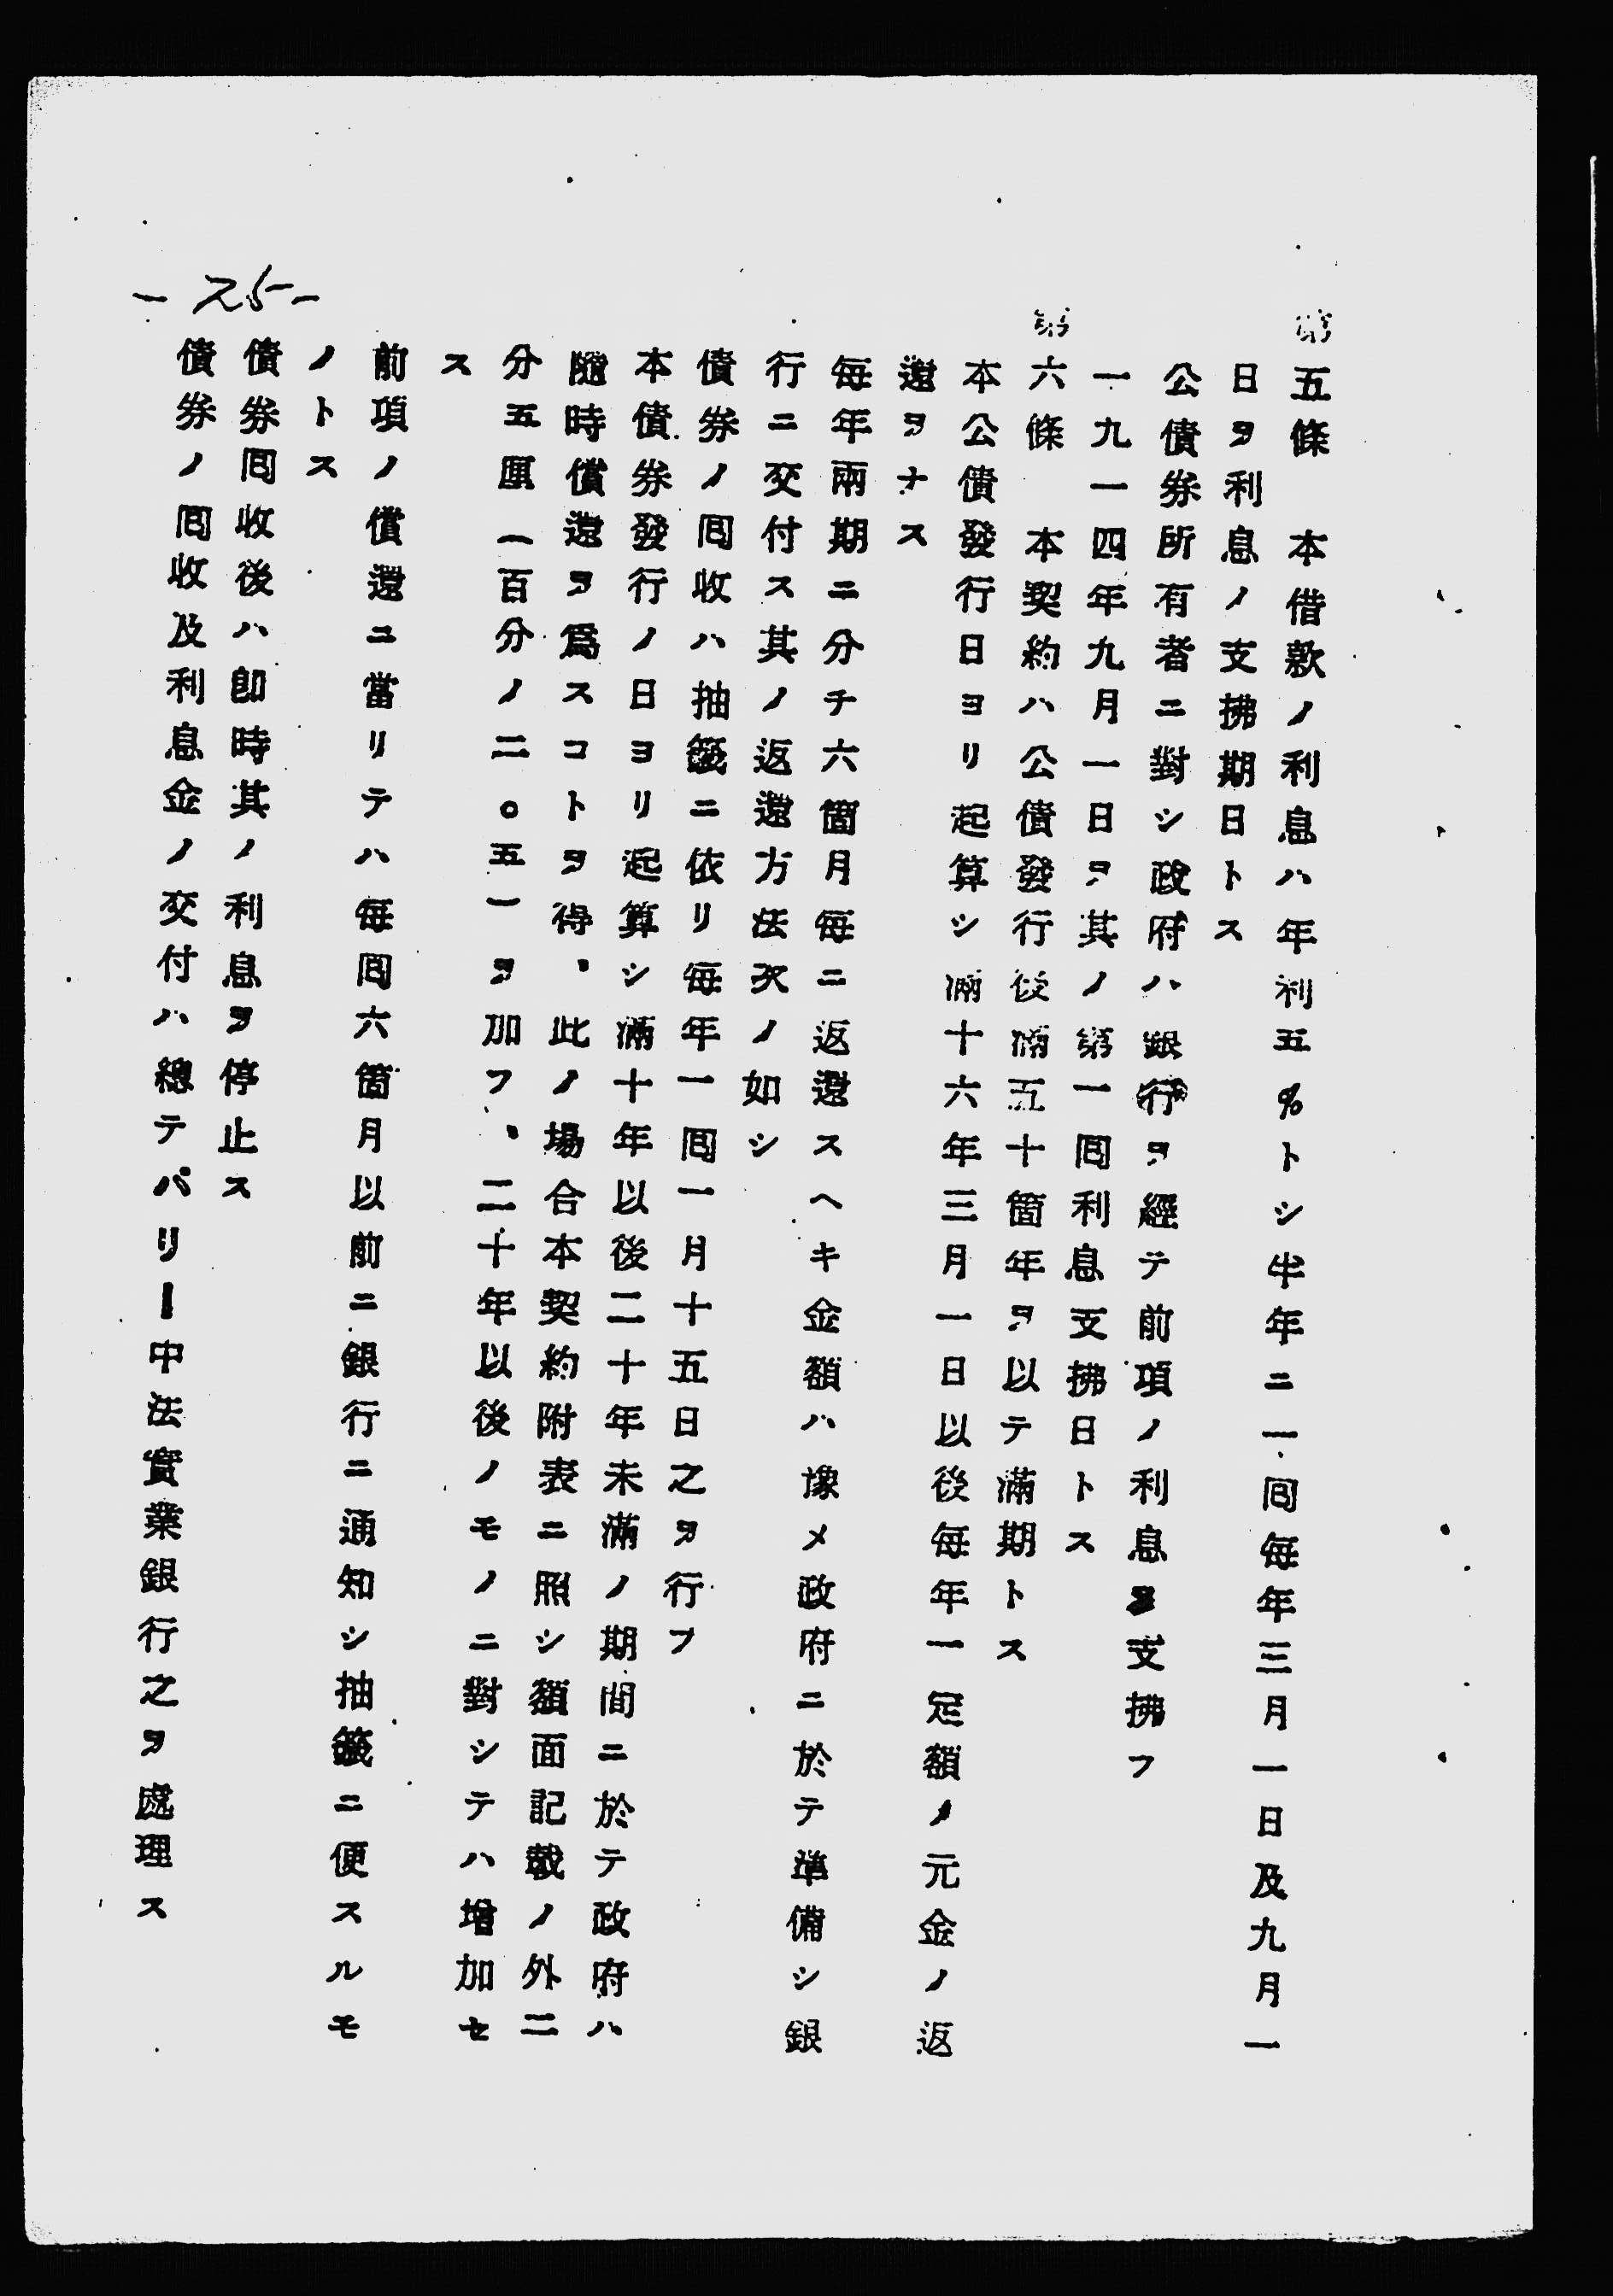 第五條　本借款ノ利息ハ年利五%トシ半年ニ一囘毎年三月一日及九月一
日ヲ利息ノ支拂期日トス
公債券所有者ニ對シ政府ハ銀行ヲ經テ前項ノ利息ヲ支拂フ
一九一四年九月一日ヲ其ノ第一囘利息支拂日トス
第六條　本契約ハ公債發行後滿五十箇年ヲ以テ滿期トス
本公債發行日ヨリ起算シ滿十六年三月一日以後毎年一定額ノ元金ノ返
還ヲナス
毎年兩期ニ分チ六箇月毎ニ返還スヘキ金額ハ豫メ政府ニ於テ準備シ銀
行ニ交付ス其ノ返還方法次ノ如シ
債券ノ囘收ハ抽籤ニ依リ毎年一囘一月十五日之ヲ行フ
本債券發行ノ日ヨリ起算シ滿十年以後二十年未滿ノ期間ニ於テ政府ハ
隨時償還ヲ爲スコトヲ得、此ノ場合本契約附表ニ照シ額面記載ノ外二
分五厘（百分ノ二。五）ヲ加フ、二十年以後ノモノニ對シテハ增加セ
ス
前項ノ償還ニ當リテハ毎囘六箇月以前ニ銀行ニ通知シ抽籤ニ便スルモ
ノトス
債券囘收後ハ卽時其ノ利息ヲ停止ス
債券ノ囘收及利息金ノ交付ハ總テパリー中法實業銀行之ヲ處理ス
-25-